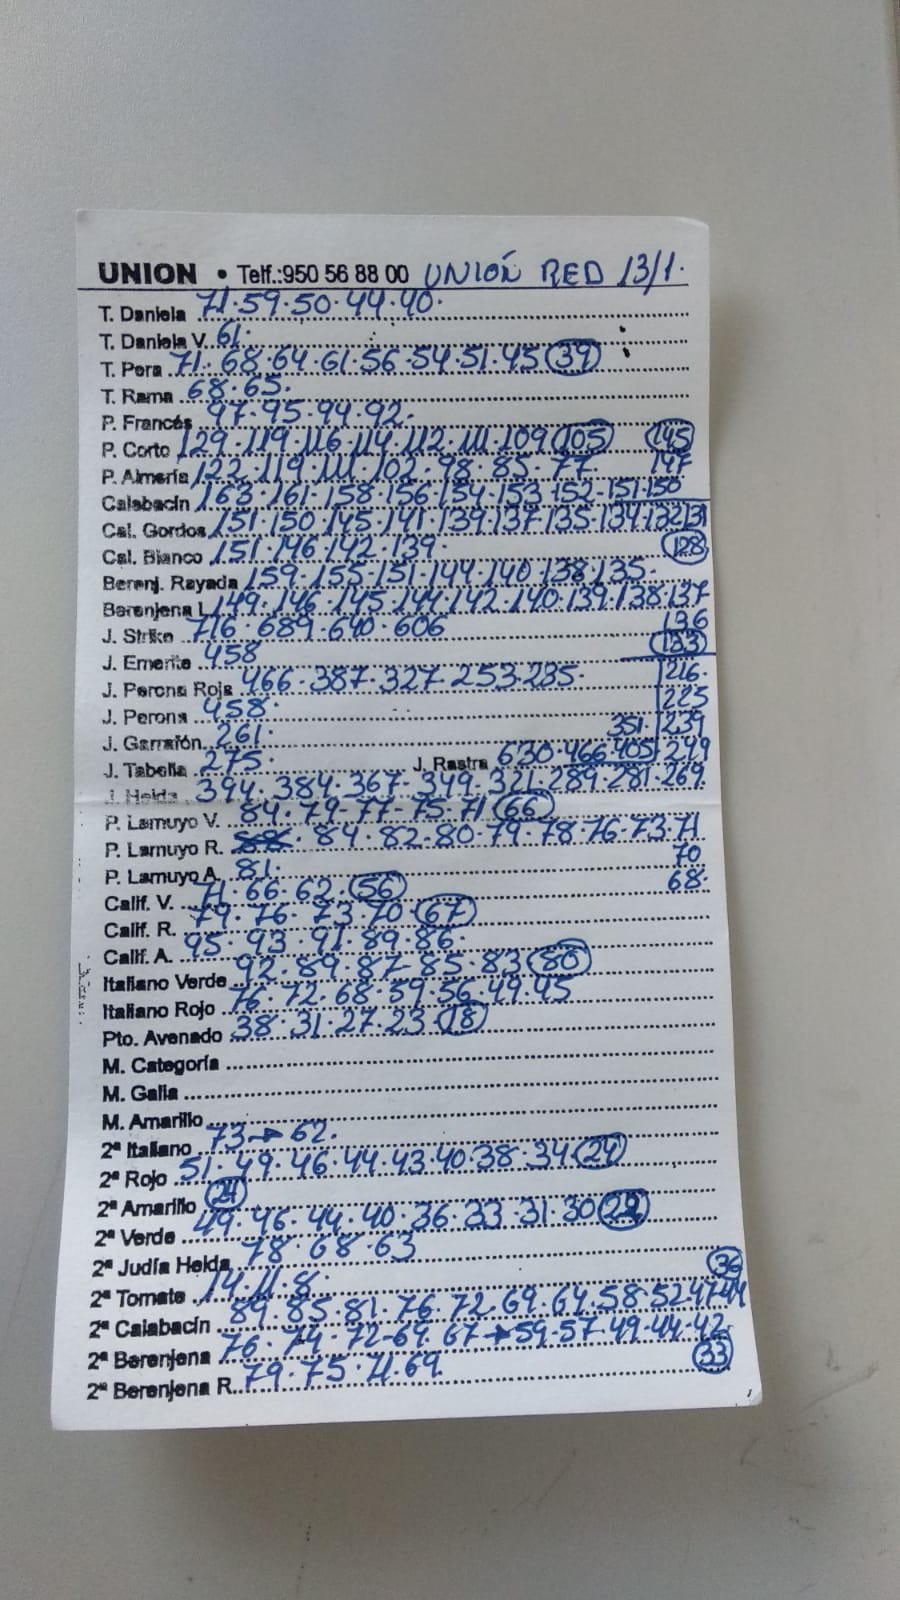 UNION • Telf.:950 56 88 00 UNIÓN RED 13/1.
T. Daniela 71·59·50·44·40·
T. Daniela V. 61·
T. Pera 71·68·64·61·56·54·51·45 39
T. Rama 68·65·
P. Francés 97·95·94·92·
P. Corto 129·119·116·114·112·111·109 105 145
P. Almería 122·119·111·102·98·85·77· 147
Calabacín 163·161·158·156·154·153·152-151·150
Cal. Gordos 151·150·145·141·139·137·135·134·132 131
Cal. Blanco 151·146·142·139· 128
Berenj. Rayada 159·155·151·144·140·138·135·
Berenjena L 149·146·145·144·142·140·139·138·137
J. Strike 716·689·640·606 136
J. Emerite 458 133
J. Perona Roja 466·387·327·253·235· 216·
J. Perona 458· 225
J. Garrafón 261· 351· 239
J. Tabella 275· J. Rastra 630·466·405 249
J. Helda 394·384·367·349·321·289·281·269·
P. Lamuyo V. 84·79-77-75-71 66
P. Lamuyo R. 84·82-80·79·78·76·73·71
P. Lamuyo A. 81· 70
Calif. V. 71·66·62· 56 68·
Calif. R. 79·76·73·70· 67
Calif. A. 95·93·91·89·86·
Italiano Verde 92·89·87-85·83 80
Italiano Rojo 76·72·68·59·56·49·45
Pto. Avenado 38·31·27·23· 18
M. Categoría
M. Galia
M. Amarillo
2ª Italiano 73→62·
2ª Rojo 51·49·46·44·43·40·38·34 24
2ª Amarillo
2ª Verde 49·46·44·40·36·33·31·30
2ª Judía Helda 78·68·63 36
2ª Tomate 14·11·8·
2ª Calabacín 89·85·81·76·72·69·64·58·52 47 44
2ª Berenjena 76·74·72-69·67→59·57·49·44·42·
2ª Berenjena R. 79·75·71·69· 33